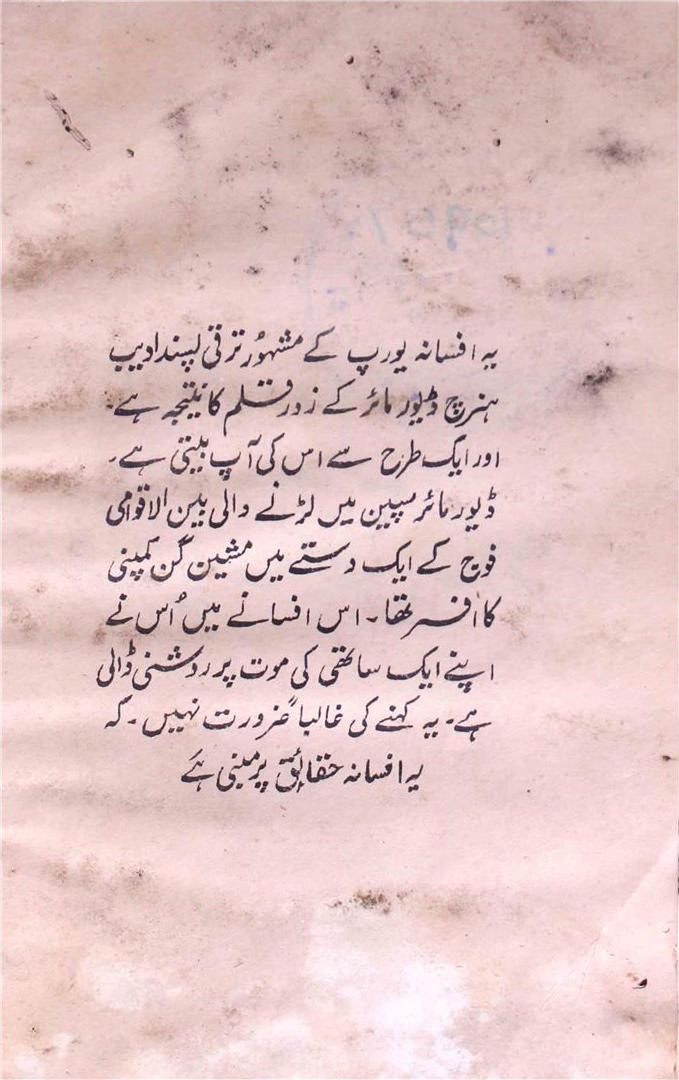 یہ افسانہ یورپ کے مشہور ترقی پسند ادیب
ہنرچ ڈیور مائر کے زور قلم کا نتیجہ ہے۔
اور ایک طرح سے اس کی آپ بیتی ہے۔
ڈیور مائر سپین میں لڑنے والی بین الاقوامی
فوج کے ایک دستے میں مشین گن کمپنی
کا افسر تھا۔ اس افسانے میں اُس نے
اپنے ایک ساتھی کی موت پر روشنی ڈالی
ہے۔ یہ کہنے کی غالباً ضرورت نہیں۔ کہ
یہ افسانہ حقائق پر مبنی ہے